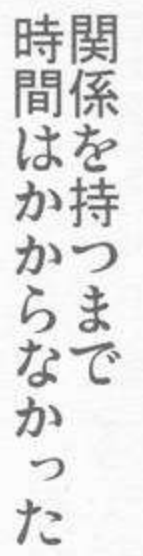 関係を持つまで
時間はかからなかった